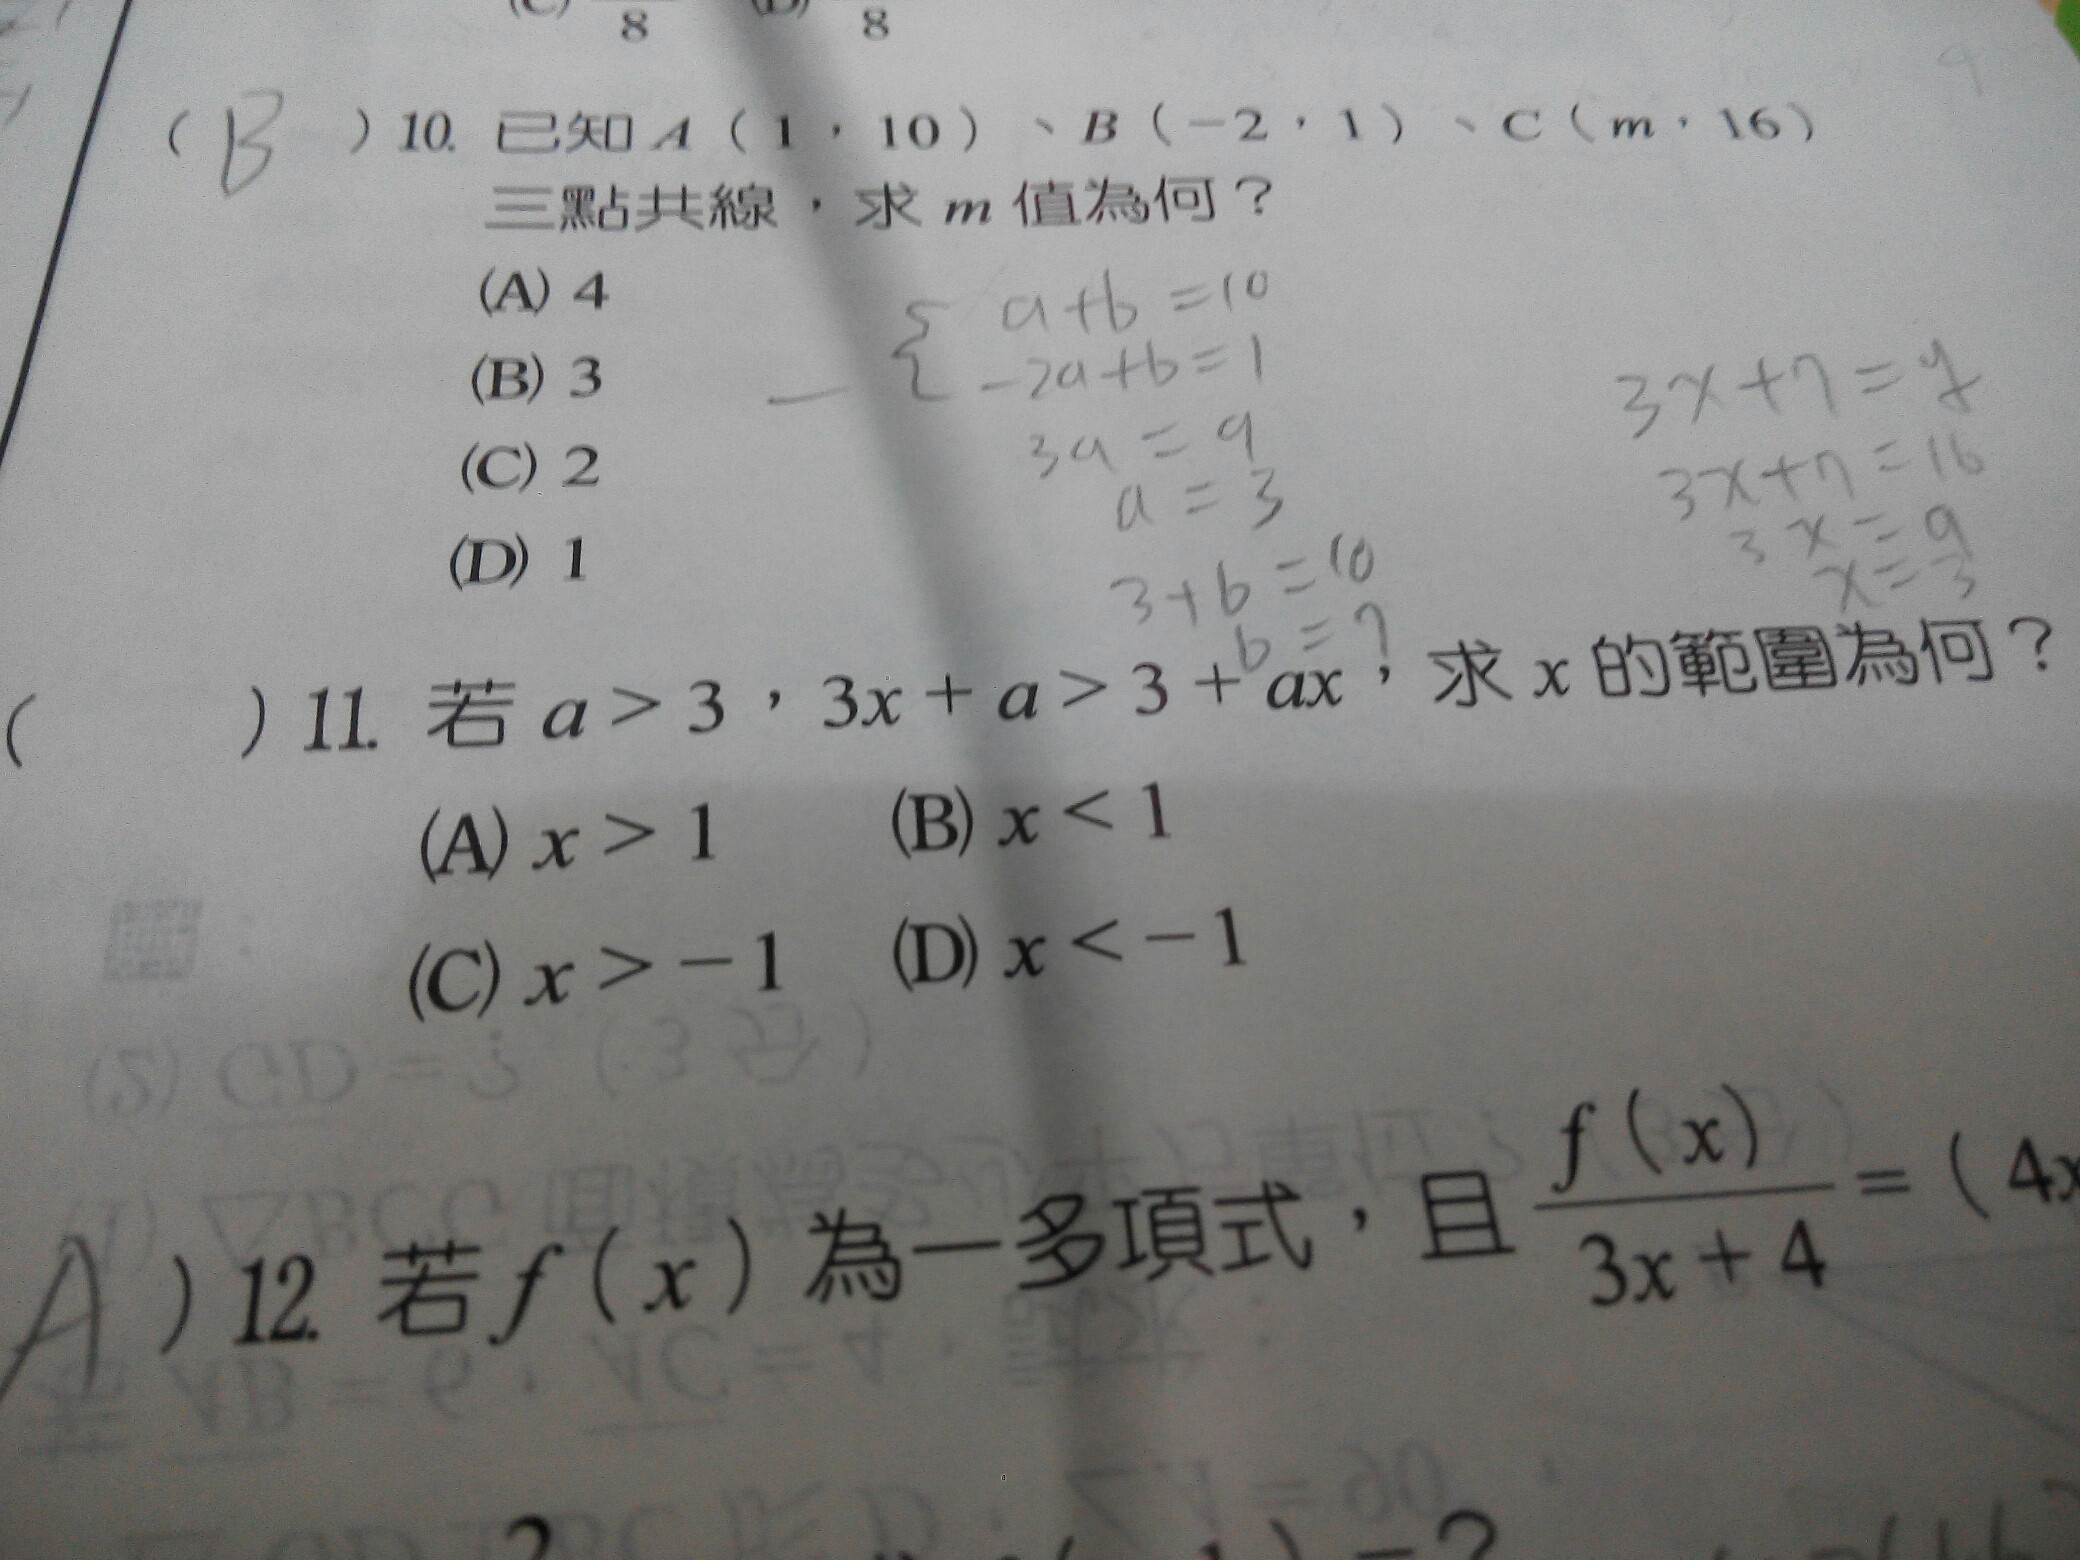 8 8
( B ) 10. 已知 A ( 1 , 10 ) 、 B ( －2 , 1 ) 、 C ( m , 16 )
三點共線，求 m 值為何？
(A) 4
(B) 3
(C) 2
(D) 1
a+b=10
-2a+b=1
3a=9
a=3
3+b=10
b=7
3x+7=y
3x+7=16
3x=9
x=3
( ) 11. 若 a > 3，3x + a > 3 + ax，求 x 的範圍為何？
(A) x > 1 (B) x < 1
(C) x > －1 (D) x < －1
A ) 12. 若 f ( x ) 為一多項式，且 f ( x ) / 3x + 4 = ( 4x